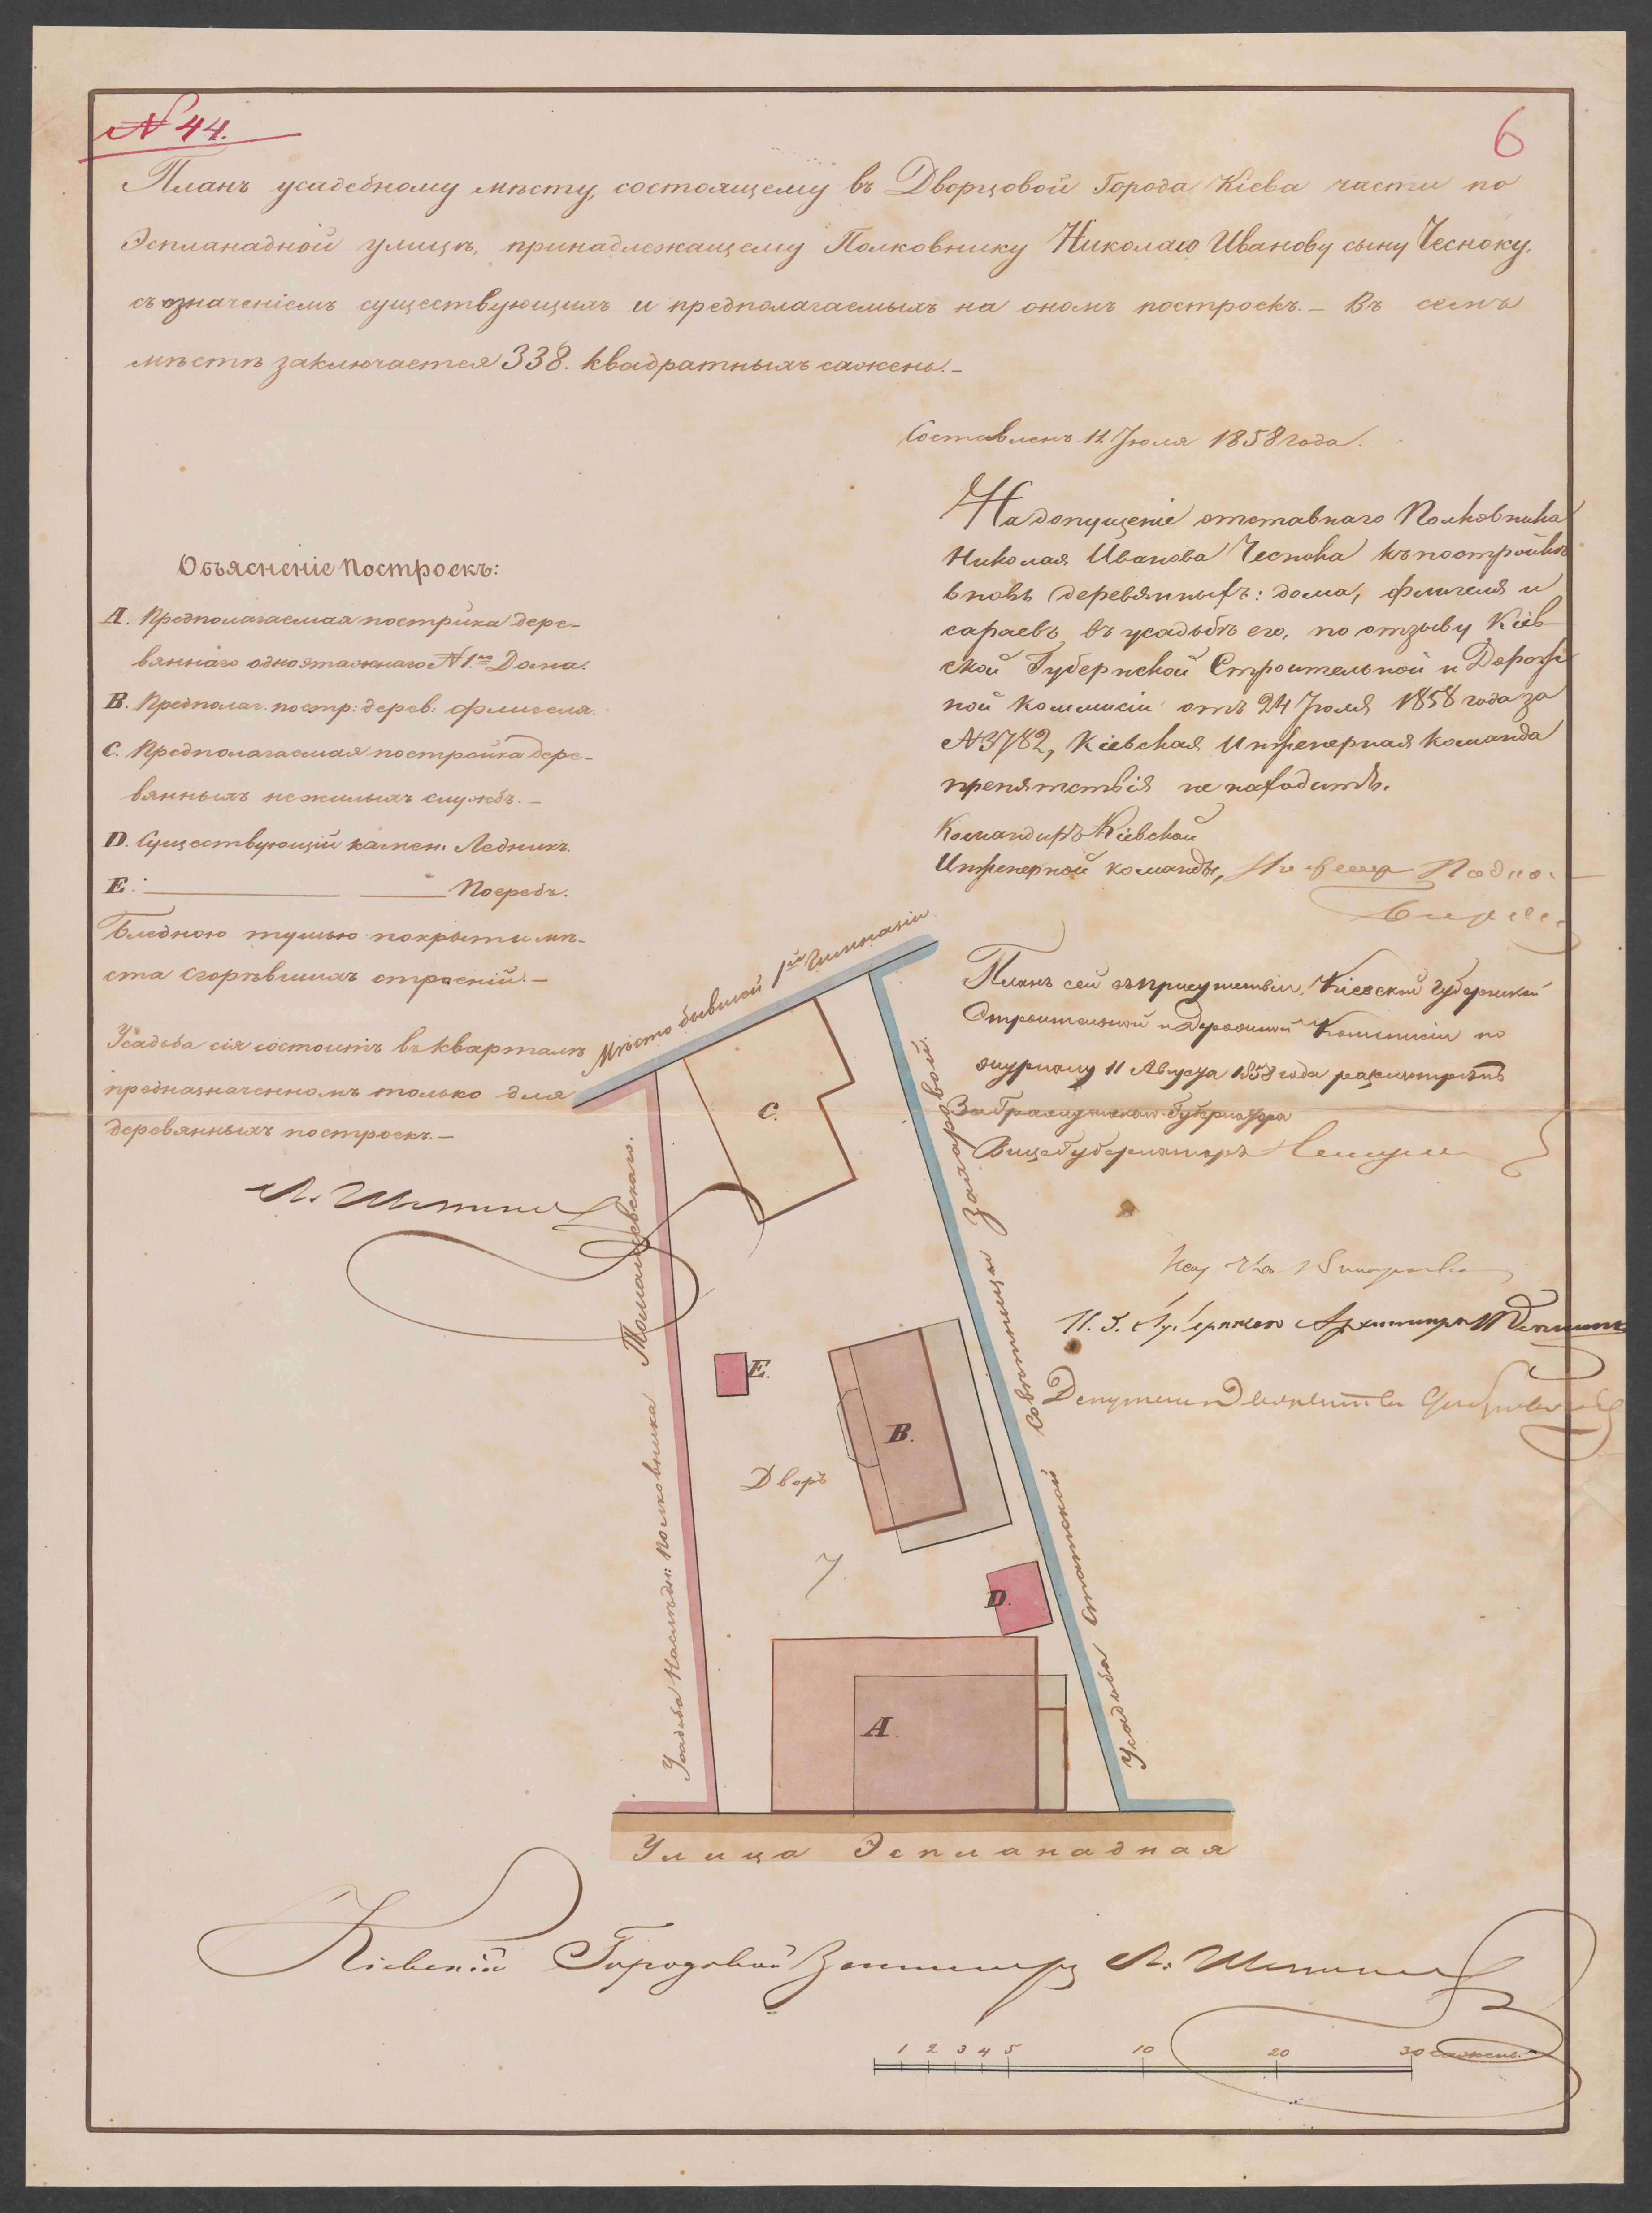 № 44.
6
Планъ усадебному мѣсту, состоящему въ Дворцовой Города Кіева части по
Эспланадной улицѣ, принадлежащему Полковнику Николаю Иванову сыну Чесноку,
съ означеніемъ существующихъ и предполагаемыхъ на ономъ построекъ. – Въ семъ
мѣстѣ заключается 338. квадратныхъ сажень. –
Составленъ 11 Іюля 1858 года.
На допущеніе отставнаго Полковника
Николая Иванова Чеснока къ постройкѣ
вновь деревянныхъ: дома, флигеля и
сараевъ, въ усадьбѣ его, по отзыву Кіев-
ской Губернской Строительной и Дорож-
ной Коммисіи отъ 24 Іюля 1858 года за
№ 3782, Кіевская Инженерная Команда
препятствія не находитъ.
Командиръ Кіевской
Инженерной команды,
Объясненіе Построекъ:
А. Предполагаемая пострйка дере-
вяннаго одноэтажнаго № 1го Дома.
В. Предполаг. постр: дерев: флигеля.
С. Предполагаемая постройка дере-
вянныхъ нежилыхъ службъ. –
D. Существующій камен: Ледникъ.
Е: —— — Погребъ.
Бледною тушью покрыты мѣ-
ста сгорѣвшихъ строеній. –
Усадьба сія состоитъ въ кварталѣ
предназначенномъ только для
деревянныхъ построекъ. –
Планъ сей въ присутствіи Кіевской Губернской
Строительной и Дорожной Коммисіи по
журналу 11 Августа 1858 года разсмотрѣнъ
За Гражданскаго Губернатора
Вицегубернаторъ
Губернскаго Архитектора
Депутатъ Дворянства
Мѣсто бывшей 1ой Гимназіи
Усадьба Наслѣдн: Полковника Томашевскаго.
Усадьба Статской Совѣтницы Захаровой.
С.
Е.
В.
Дворъ
D.
А.
Улица Эспланадная
Кіевскій Городовой Землемеръ
1 2 3 4 5 10 20 30 сажень.